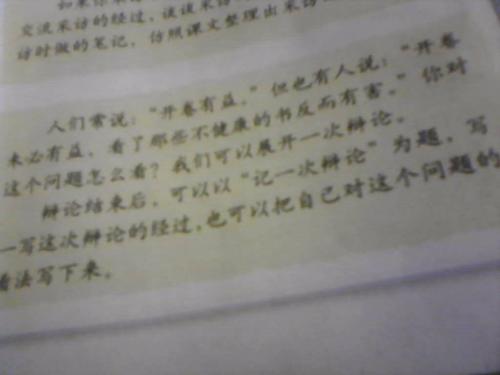 如果你采
交流采访的经过，谈谈采访
访时做的笔记，仿照课文整理出采访
人们常说：“开卷有益。”但也有人说：“开卷
未必有益，看了那些不健康的书反而有害。”你对
这个问题怎么看？我们可以展开一次辩论。
辩论结束后，可以以“记一次辩论”为题，写
一写这次辩论的经过，也可以把自己对这个问题的
看法写下来。